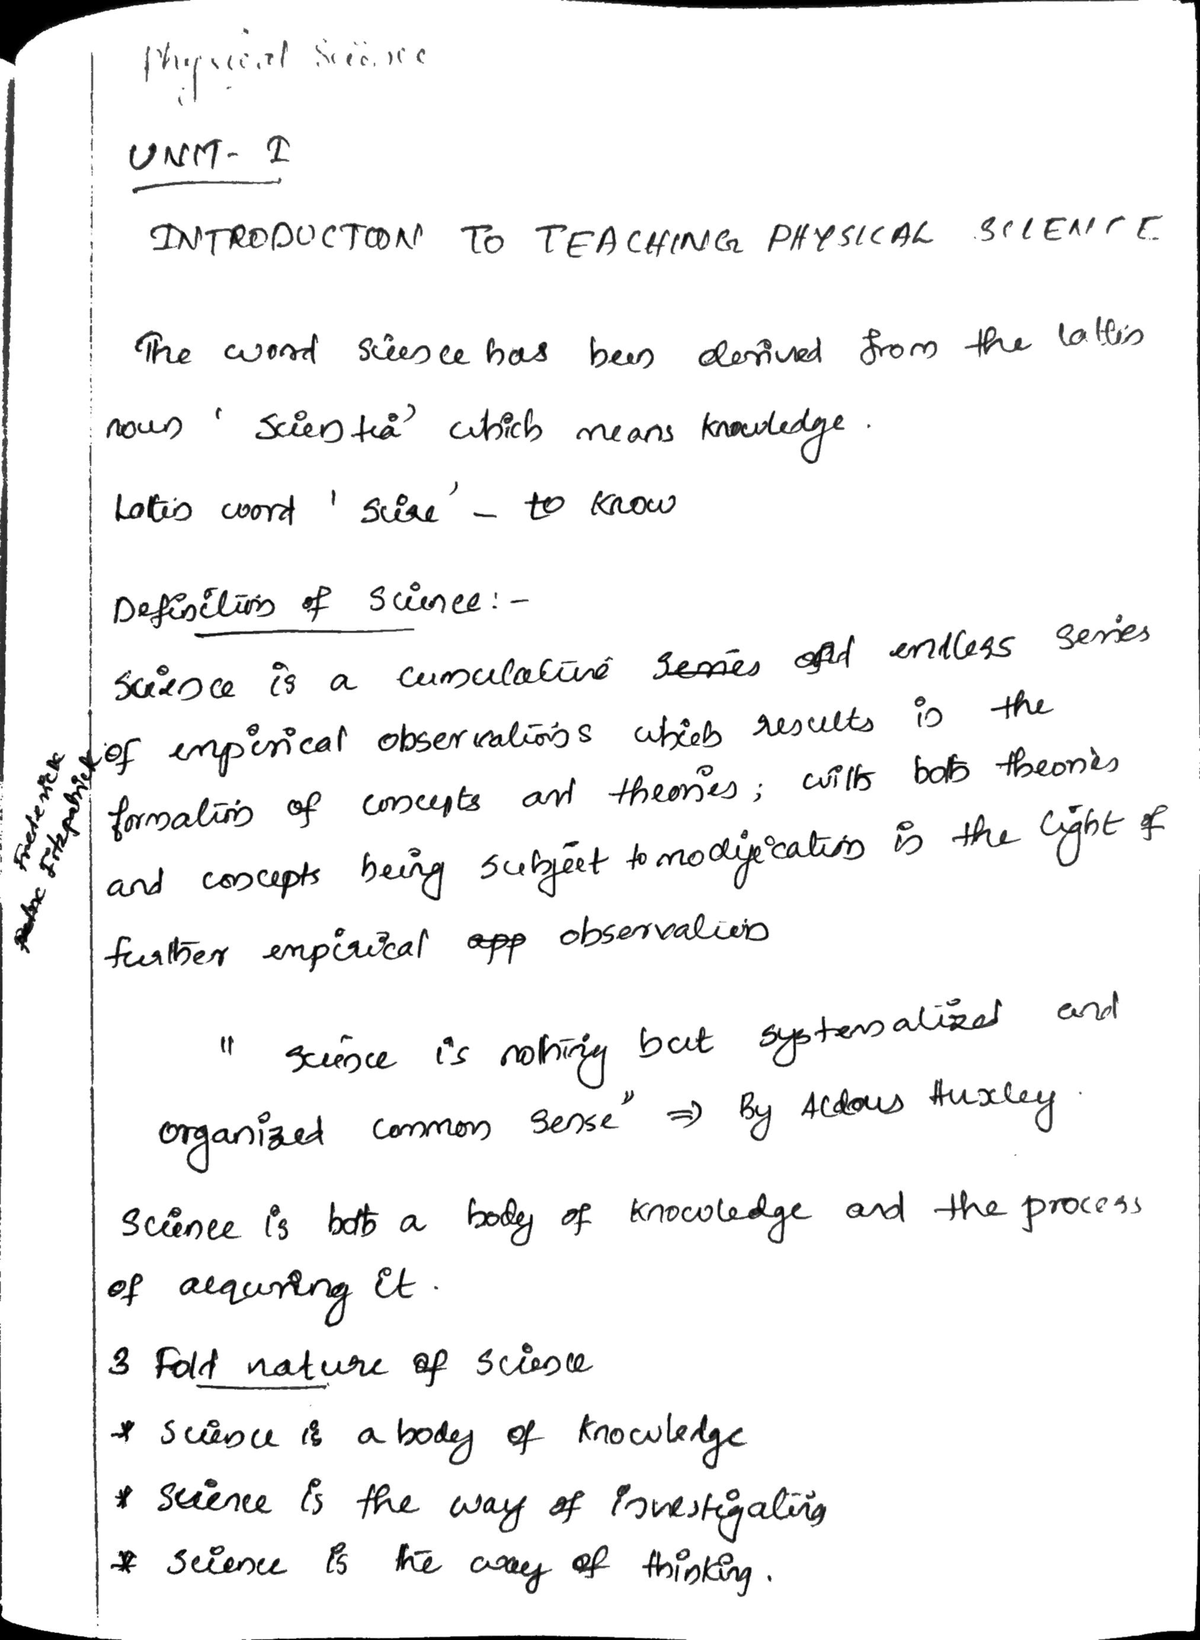 Physical Science
UNIT- I
INTRODUCTION TO TEACHING PHYSICAL SCIENCE
The word science has been derived from the lattin
noun ' Scientia' which means knowledge.
Latin word ' Scire' – to know
Definition of Science:-
Science is a cumulative series and endless series
of empirical observations which results in the
formation of concepts and theories; with both theories
and concepts being subject to modification in the light of
further empirical app observation
Frederick
Fitzpatrick
" Science is nothing but systematized and
organized common sense" ⇒ By Aldous Huxley.
Science is both a body of knowledge and the process
of acquring it.
3 Fold nature of science
* Science is a body of knowledge
* Science is the way of investigating
* Science is the way of thinking.